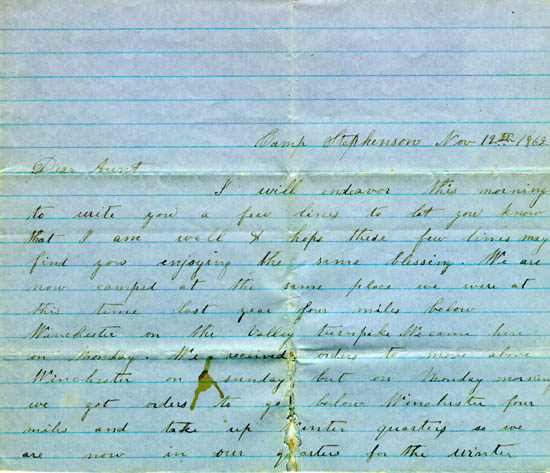 Camp Stephenson Nov 12th 1862
Dear Aunt
I will endeavor this morning
to write you a few lines to let you know
that I am well & hope these few lines may
find you enjoying the same blessing. We are
now camped at the same place we were at
this time last year four miles below
Winchester on the Valley turnpike We came here
on Monday. We received orders to move above
Winchester on sunday but on Monday morning
we got orders to go below Winchester four
miles and take up winter quarters so we
are now in our quarters for the winter